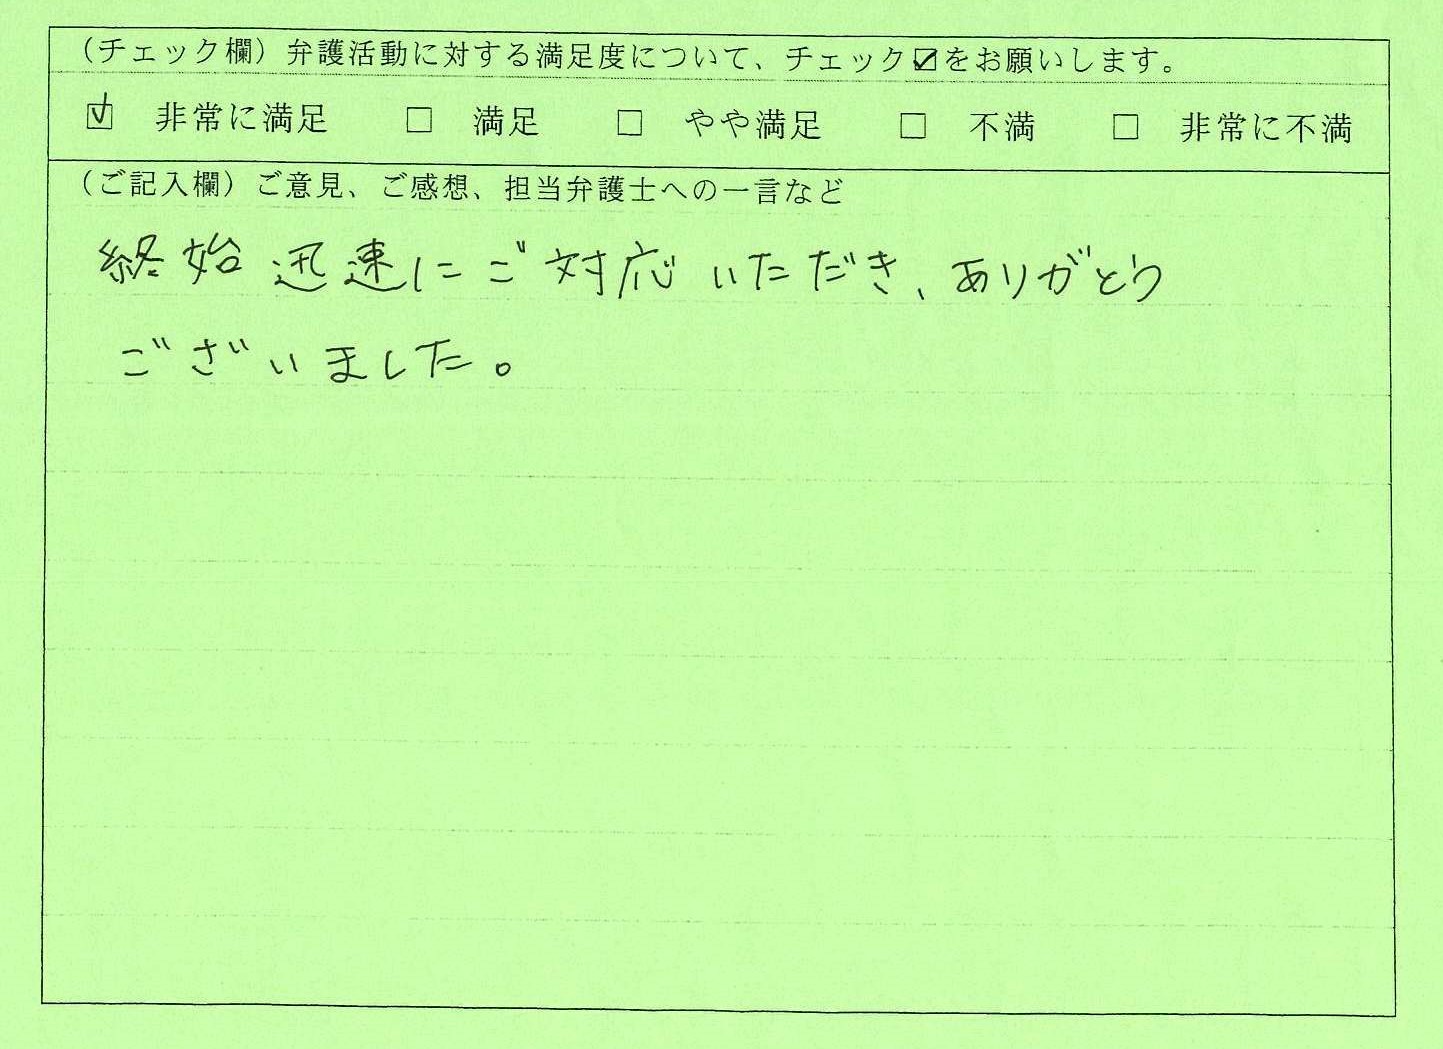 （チェック欄）弁護活動に対する満足度について、チェック☑をお願いします。
☑ 非常に満足 □ 満足 □ やや満足 □ 不満 □ 非常に不満
（ご記入欄）ご意見、ご感想、担当弁護士への一言など
終始迅速にご対応いただき、ありがとう
ございました。